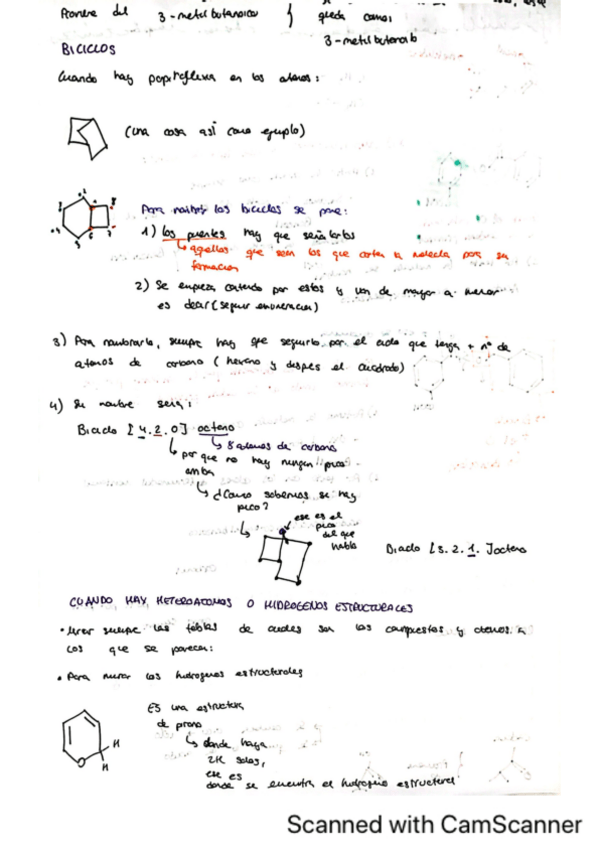 3-metil butanoico
queda como:
3-metil butanoilo
BICICLOS
Cuando hay en los atenos:
(una cosa así como ejemplo)
Para nombrar los biciclos se pone:
1) los puentes hay que señalarlos
aquellos que sean los que cortan la molecula por su
formacion
2) Se empieza contando por estos y van de mayor a menor
es decir (seguir enumeracion)
3) Para nombrarlo, siempre hay que seguirlo por el ciclo que tenga + nº de
atomos de carbono (hexeno y despues el cuadrado)
4) Su nombre seria:
Biciclo [4.2.0] octano
8 atomos de carbono
porque no hay ningun "pico"
arriba
¿Como sabemos si hay
pico?
ese es el
pico
del que
hablo
Biciclo [3.2.1.]octano
CUANDO HAY HETEROATOMOS O HIDROGENOS ESTRUCTURALES
• Mirar siempre las tablas de cuales son los compuestos y atenos a
los que se parecen:
• Para mirar los hidrogenos estructurales
ES una estructura
de pirano
donde haya
2H solos,
ese es
donde se encuentra el hidrogeno estructural
H
H
O
Scanned with CamScanner